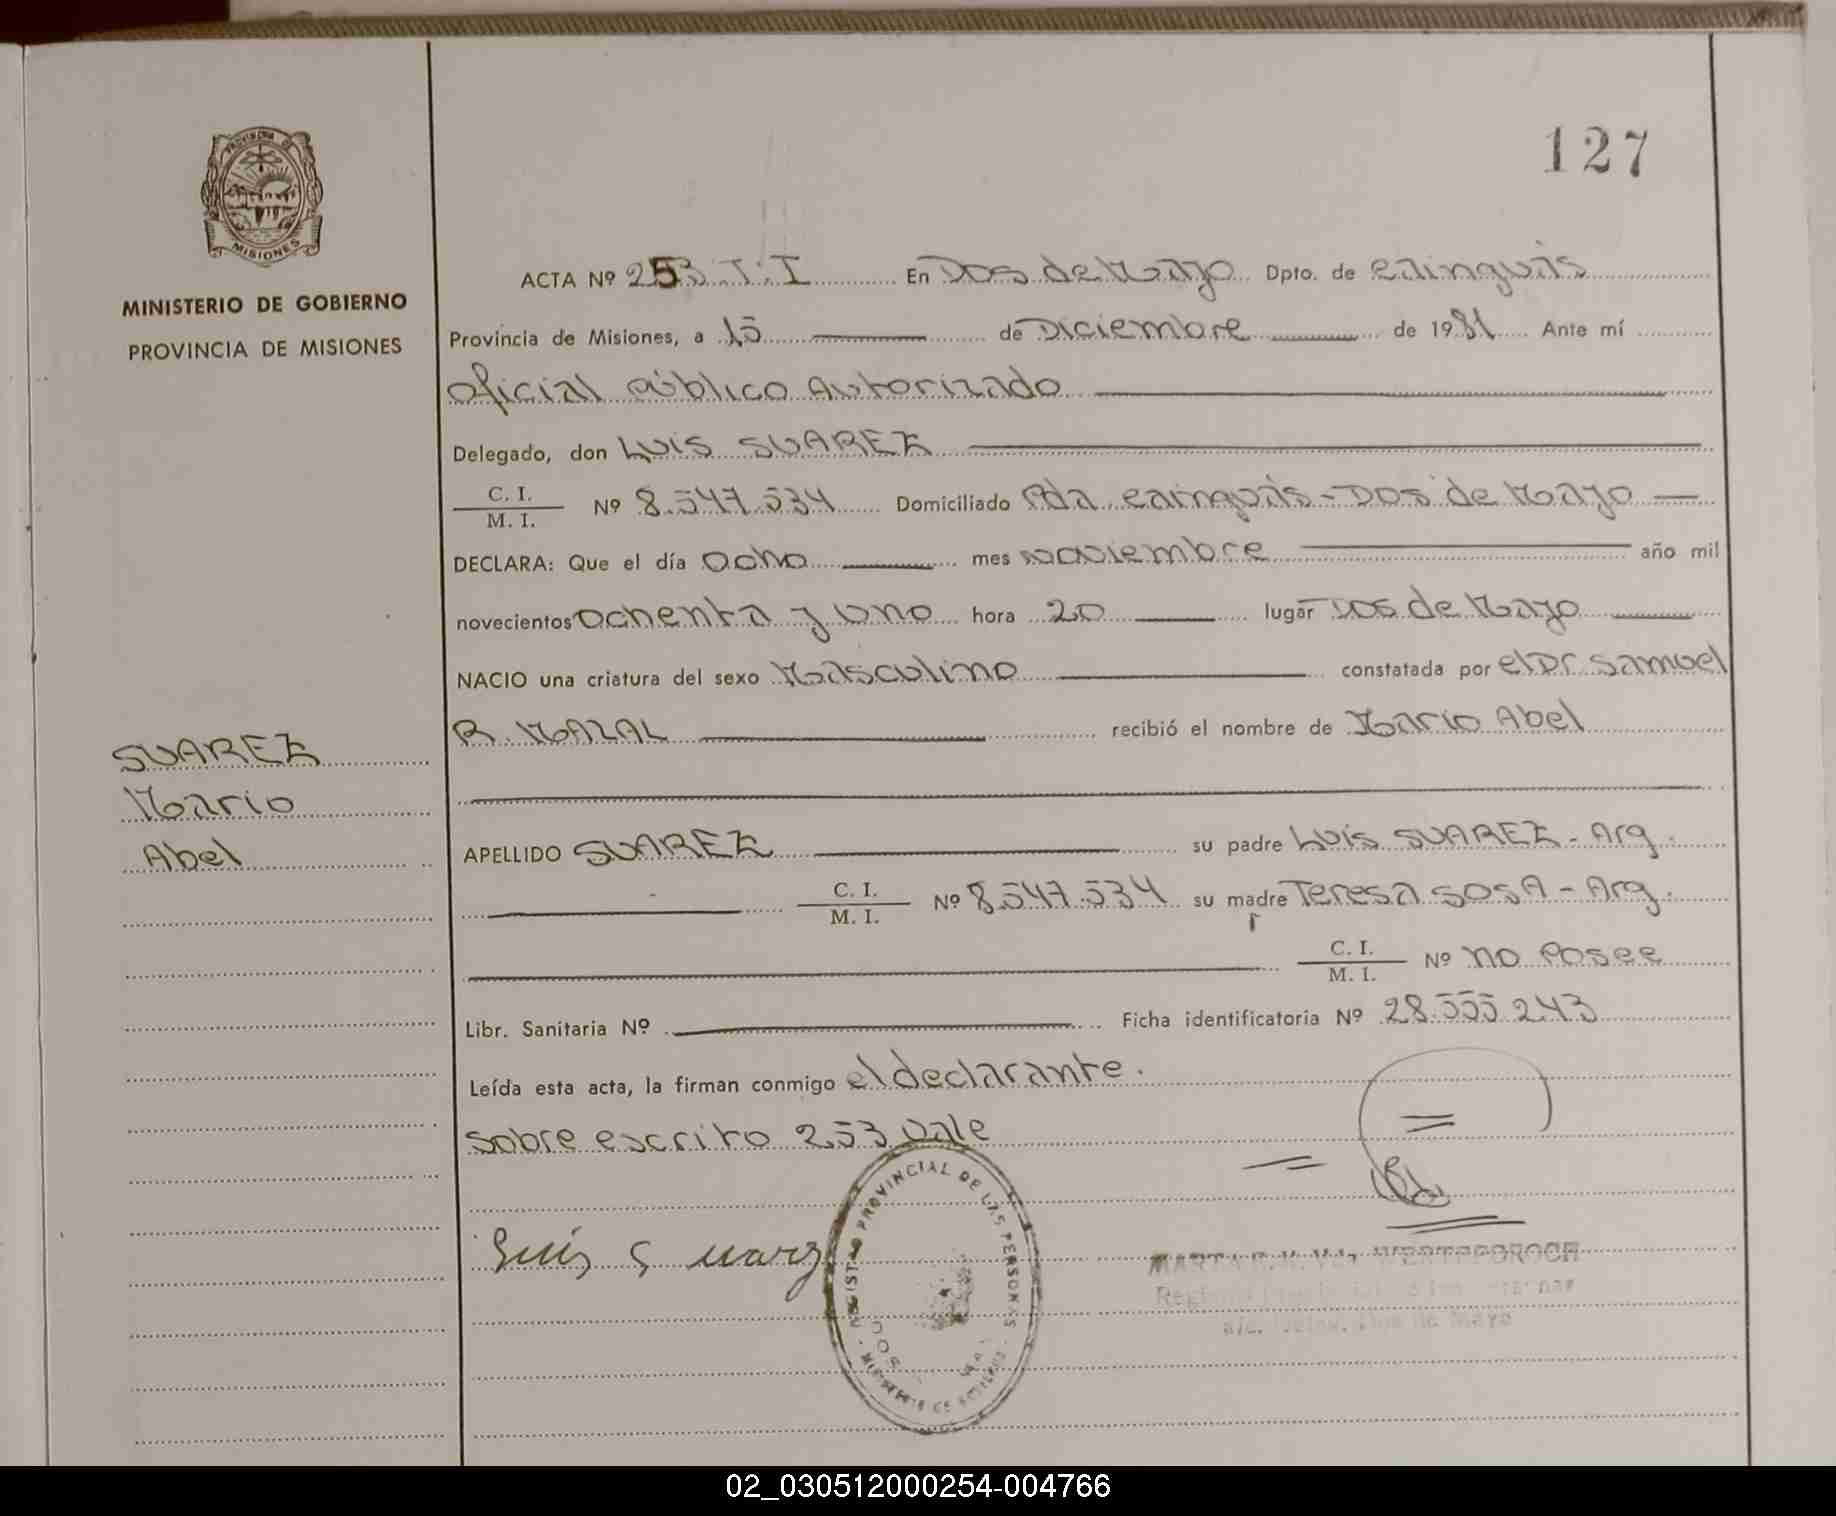 127
PROVINCIA DE
MISIONES
MINISTERIO DE GOBIERNO
PROVINCIA DE MISIONES
ACTA Nº 253 T. I En Dos de Mayo Dpto. de Cainguás
Provincia de Misiones, a 15 de Diciembre de 1981 Ante mí
Oficial Público Autorizado
Delegado, don LUIS SUAREZ
C. I.
M. I. Nº 8.547.534 Domiciliado Pda. Cainguás - Dos de Mayo
DECLARA: Que el día Ocho mes Noviembre año mil
novecientos Ochenta y uno hora 20 lugar Dos de Mayo
NACIO una criatura del sexo Masculino constatada por el Dr. Samuel
R. MAZAL recibió el nombre de Mario Abel
SUAREZ
Mario
Abel
APELLIDO SUAREZ su padre Luis SUAREZ - Arg.
C. I.
M. I. Nº 8.547.534 su madre Teresa SOSA - Arg.
C. I.
M. I. Nº no Posee
Libr. Sanitaria Nº Ficha identificatoria Nº 28.555.243
Leída esta acta, la firman conmigo el declarante.
Sobre escrito 253 vale
Luis Suarez
REGISTRO PROVINCIAL DE LAS PERSONAS
DOS
MINISTERIO DE GOBIERNO
MARTA
Dos de Mayo
02_030512000254-004766